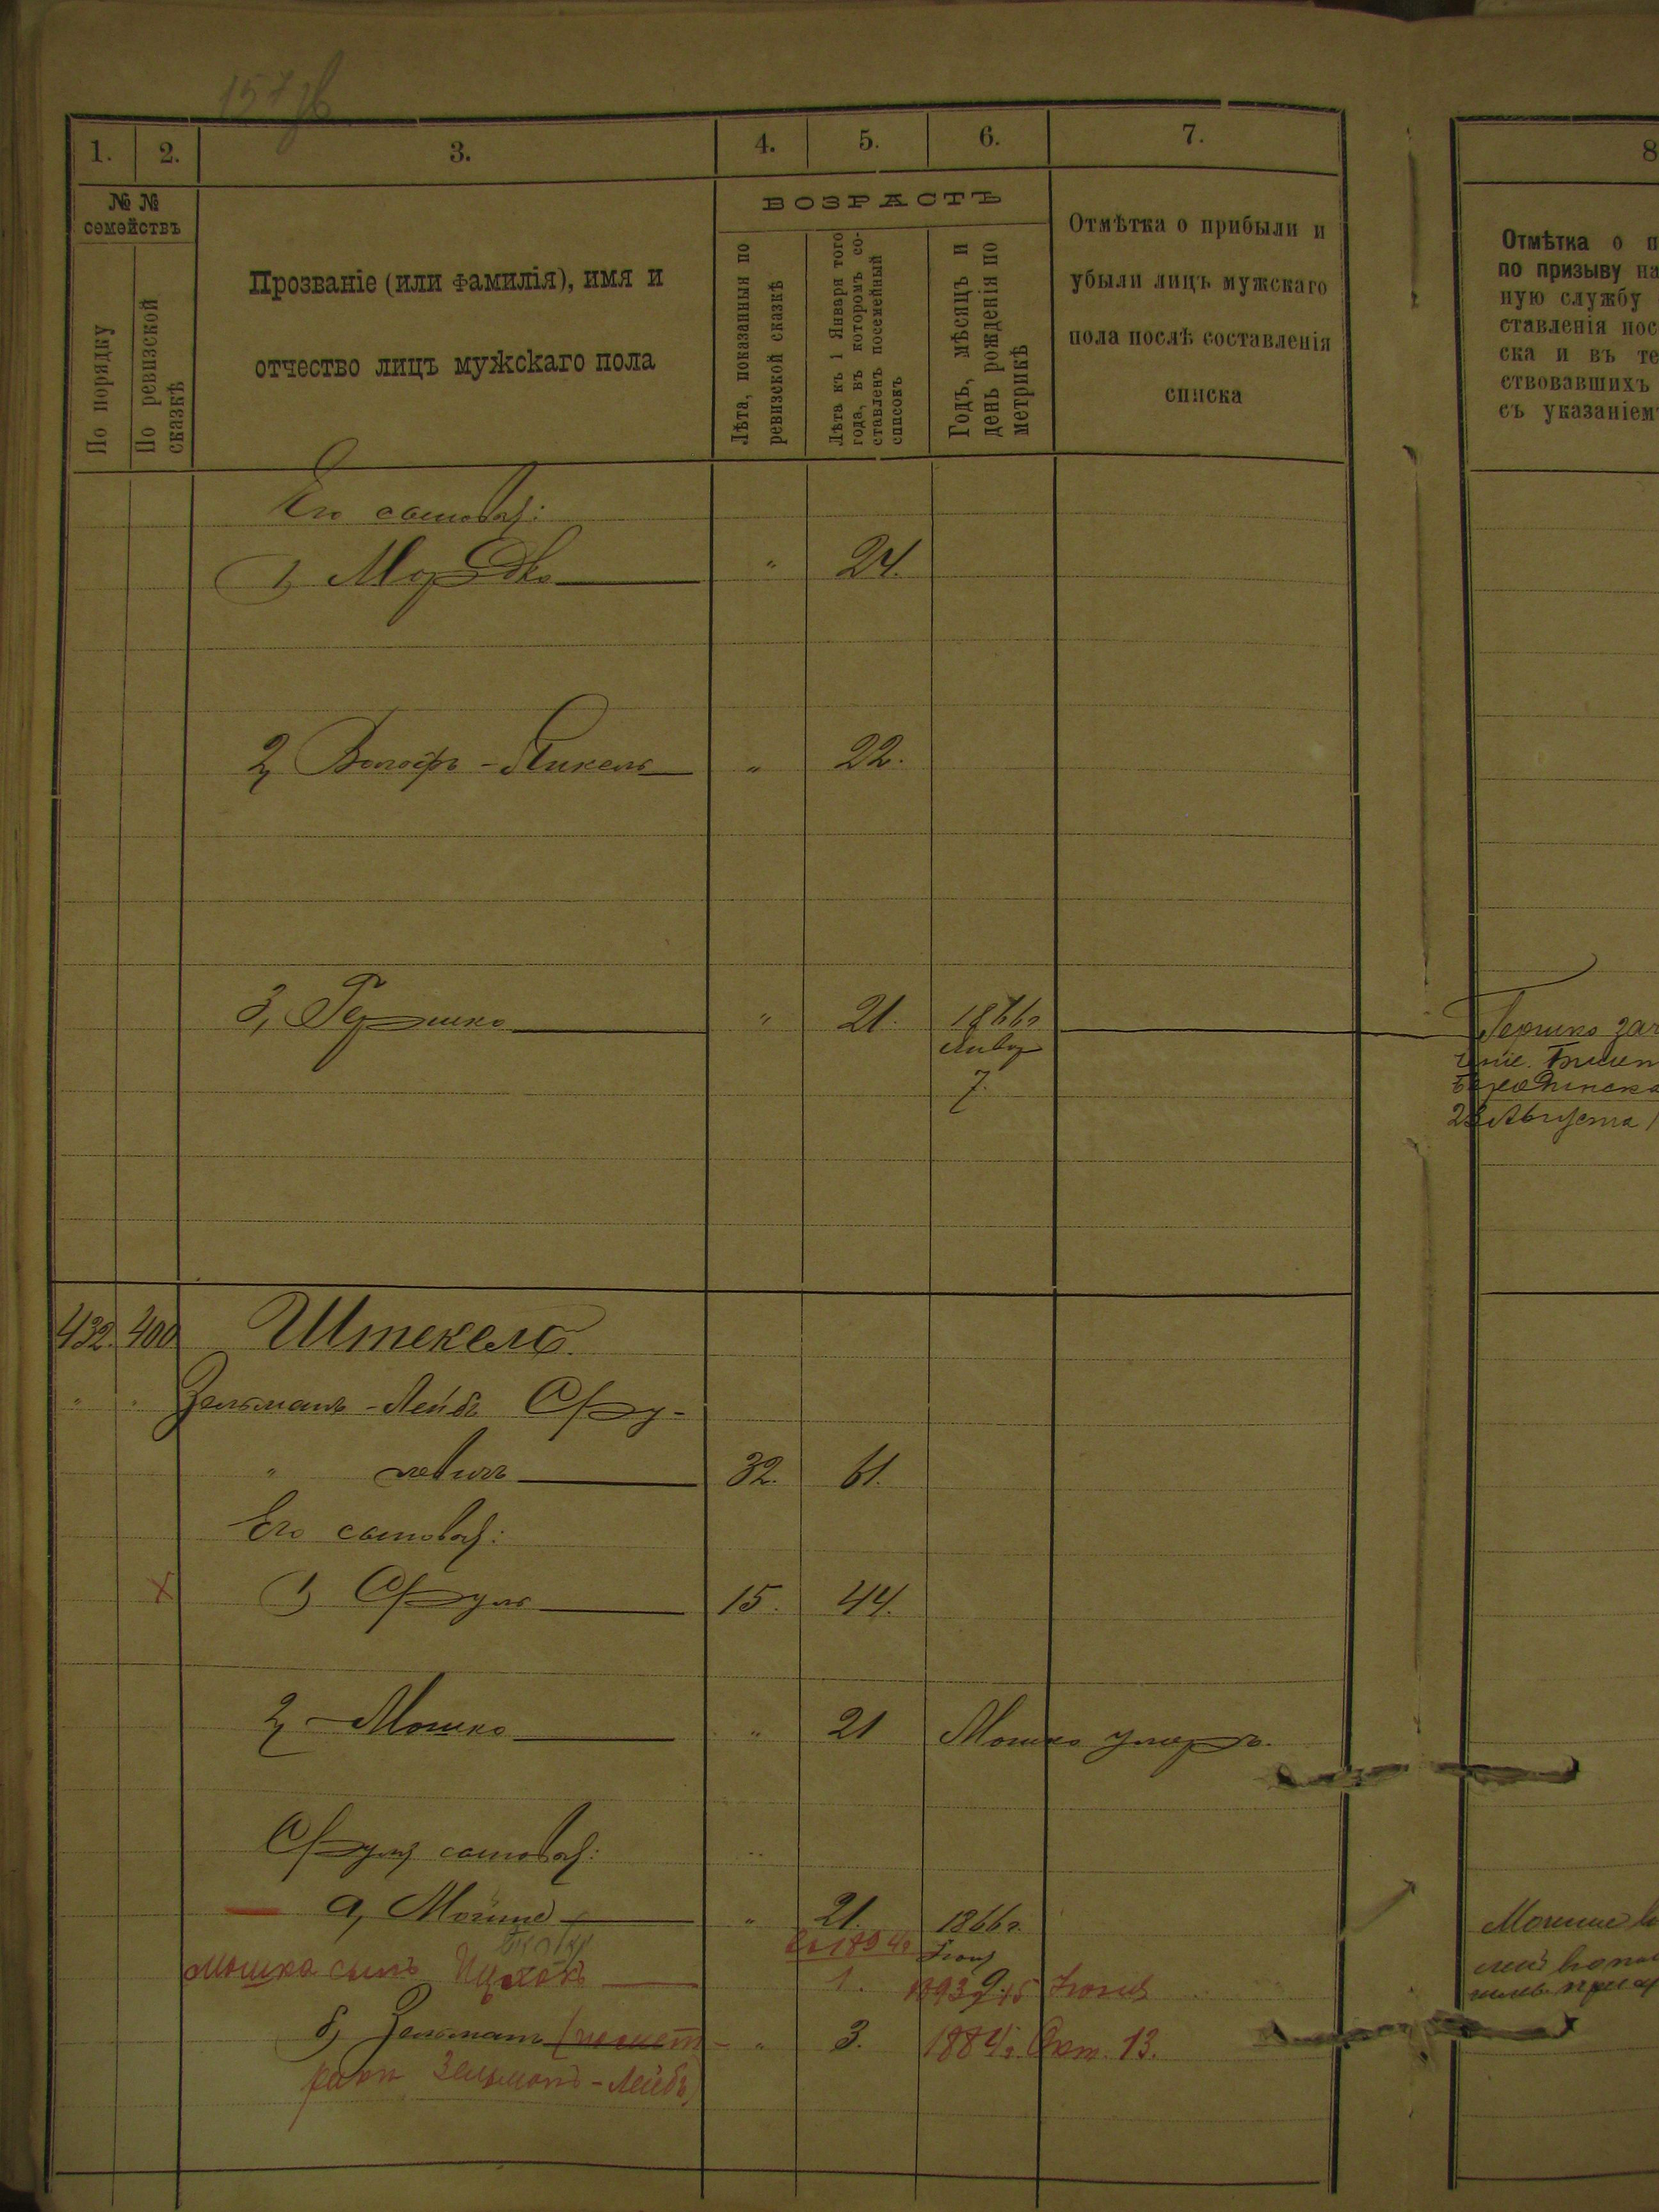 1. 2. 3. 4. 5. 6. 7.
№ №
семействъ
По порядку
По ревизской
сказкѣ
Прозваніе (или фамилія), имя и
отчество лицъ мужскаго пола
ВОЗРАСТЪ
Лѣта, показанныя по
ревизской сказкѣ
Лѣта къ 1 Января того
года, въ которомъ со-
ставленъ посемейный
списокъ
Годъ, мѣсяцъ и
день рожденія по
метрикѣ
Отмѣтка о прибыли и
убыли лицъ мужскаго
пола послѣ составленія
списка
Его сыновья:
1, Мордко " 24.
2, Вольфъ-Янкель " 22.
3, Гершко " 21. 1866г
Янвр
7.
432. 400 Штекель.
" " Зельманъ-Лейбъ Сру-
" левичъ 32. 61.
Его сыновья:
1, Сруль 15. 44.
2, Мошко " 21 Мошко умеръ.
Сруля сыновья:
а, Мойше " 21. 1866г.
Іюня
9.
Мошка сынъ Ицхокъ 1. 1893 15 Іюня
б, Зельманъ " 3. 1884г. Окт. 13.
Зельманъ-Лейбъ)
8
Отмѣтка о п
по призыву на
ную службу
ставленія пос
ска и въ те
ствовавшихъ
съ указаніем
Гершко зач
чніе. Билет
23 Августа 1
Мошше